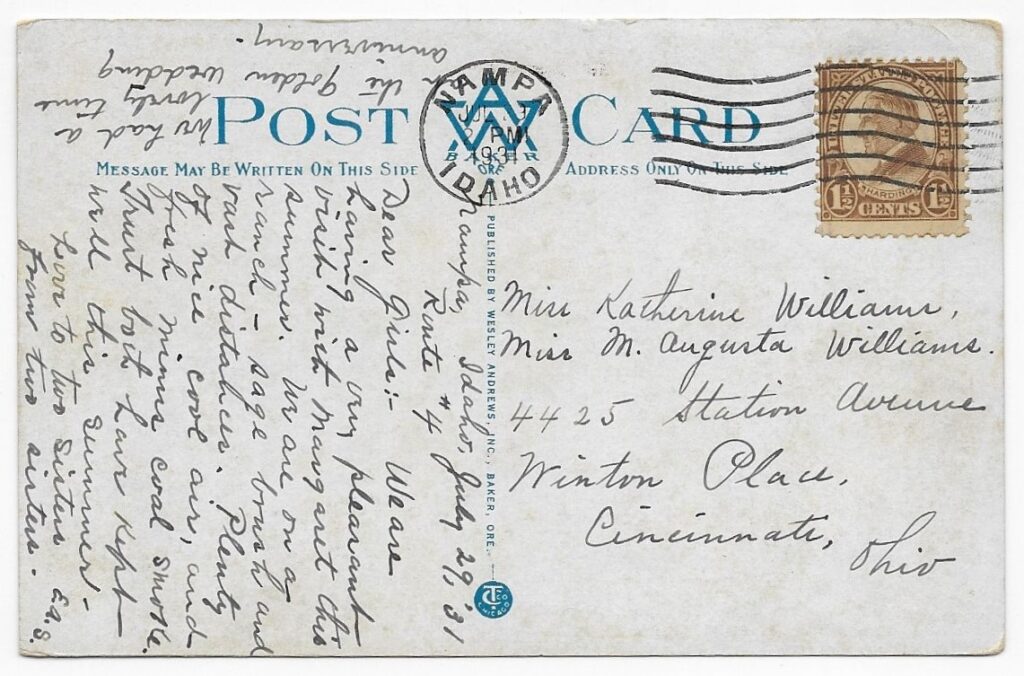 POST CARD
MESSAGE MAY BE WRITTEN ON THIS SIDE
ADDRESS ONLY ON THIS SIDE
NAMPA
JUL
PM
1931
IDAHO
BAKER
ORE
HARDING
1½ CENTS 1½
Nampa, Idaho, July 29, '31
Route #4
Dear Girls:- We are
having a very pleasant
visit with Margaret this
summer. We are on a
ranch - sage brush and
vast distances. Plenty
of nice cool air, and
fresh minus coal smoke.
Trust both have kept
well this summer -
Love to two sisters
from two sisters. E.A.S.
We had a
lovely time
on the golden wedding
anniversary.
PUBLISHED BY WESLEY ANDREWS, INC., BAKER, ORE.
C.T. CO.
CHICAGO
Miss Katherine Williams,
Miss M. Augusta Williams.
4425 Station Avenue
Winton Place,
Cincinnati,
Ohio